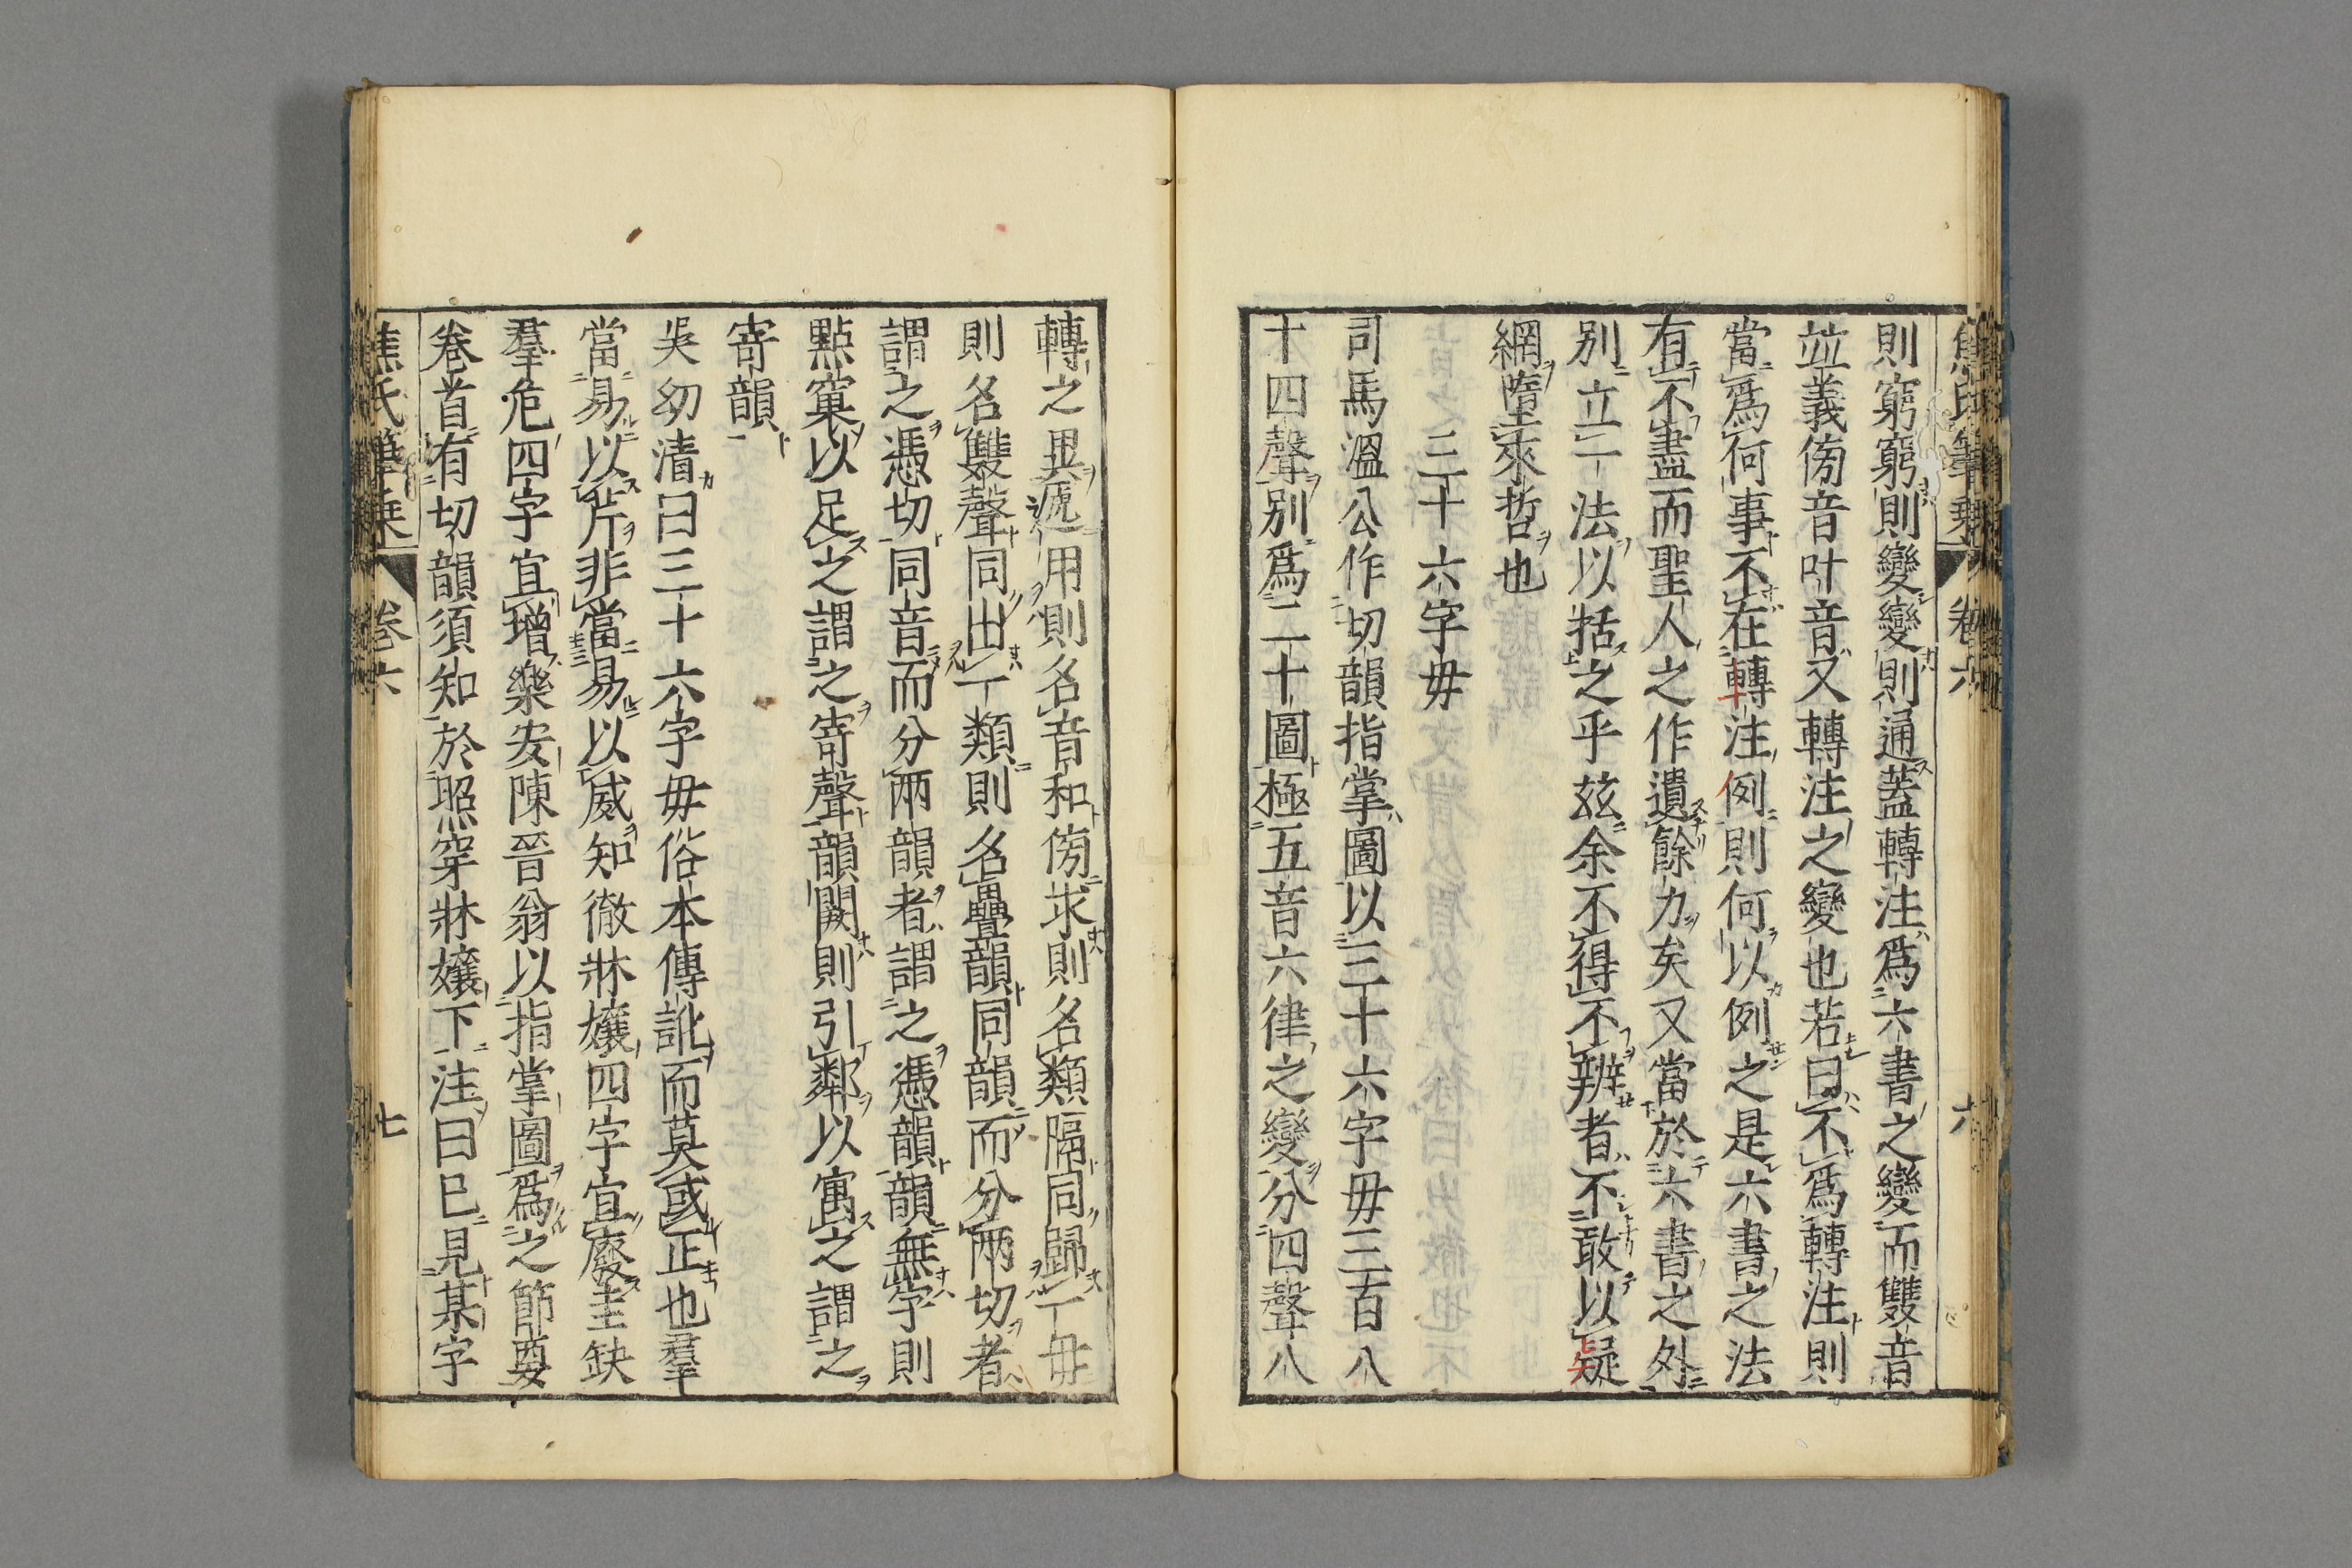 則窮窮則變變則通蓋轉注爲六書之變而雙音
並義傍音叶音又轉注之變也若曰不爲轉注則
當爲何事不在轉注例則何以例之是六書之法
有不盡而聖人之作遺餘力矣又當於六書之外
別立一法以括之乎玆余不得不辨者不敢以疑
網墮來哲也
三十六字毋
司馬溫公作切韻指掌圖以三十六字毋三百八
十四聲別爲二十圖極五音六律之變分四聲八
轉之異遞用則名音和傍求則名類隔同歸一毋
則名雙聲同出一類則名疊韻同韻而分兩切者
謂之憑切同音而分兩韻者謂之憑韻韻無字則
點窠以足之謂之寄聲韻闕則引鄰以寓之謂之
寄韻
吳幼清曰三十六字毋俗本傳訛而莫或正也羣
當易以芹非當易以威知徹牀孃四字宜廢圭缺
羣危四字宜增樂安陳晉翁以指掌圖爲之節要
卷首有切韻須知於照穿牀孃下注曰已見某字
焦氏筆乗 卷六 七